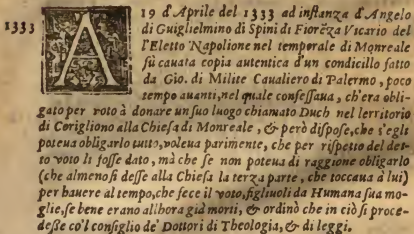 1333
A 19 d'Aprile del 1333 ad instanza d'Angelo
di Guiglielmino di Spini di Fiorẽza Vicario del
l'Eletto Napolione nel temporale di Mõreale
fù cauata copia autentica d'un condicillo fatto
da Gio. di Milite Caualiero di Palermo, poco
tempo auanti, nel quale confessaua, ch'era obli-
gato per voto à donare un suo luogo chiamato Duch nel lerritorio
di Corigliono alla Chiesa di Monreale, & però dispose, che s'eglt
poteua obligarlo tutto, voleua parimente, che per rispetto del det-
to voto li fosse dato, mà che se non poteua di raggione obligarlo
(che almeno si desse alla Chiesa la terza parte, che toccaua à lui)
per hauere al tempo, che fece il voto, figliuoli da Humana sua mo-
glie, se bene erano allhora già morti, & ordinò che in ciò si proce-
desse co'l consiglio de' Dottori di Theologia, & di leggi.